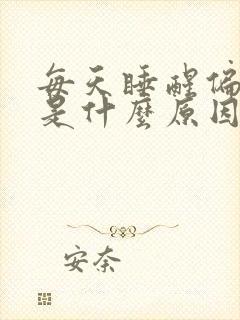 每天睡醒偏
是什麼原因
安奈